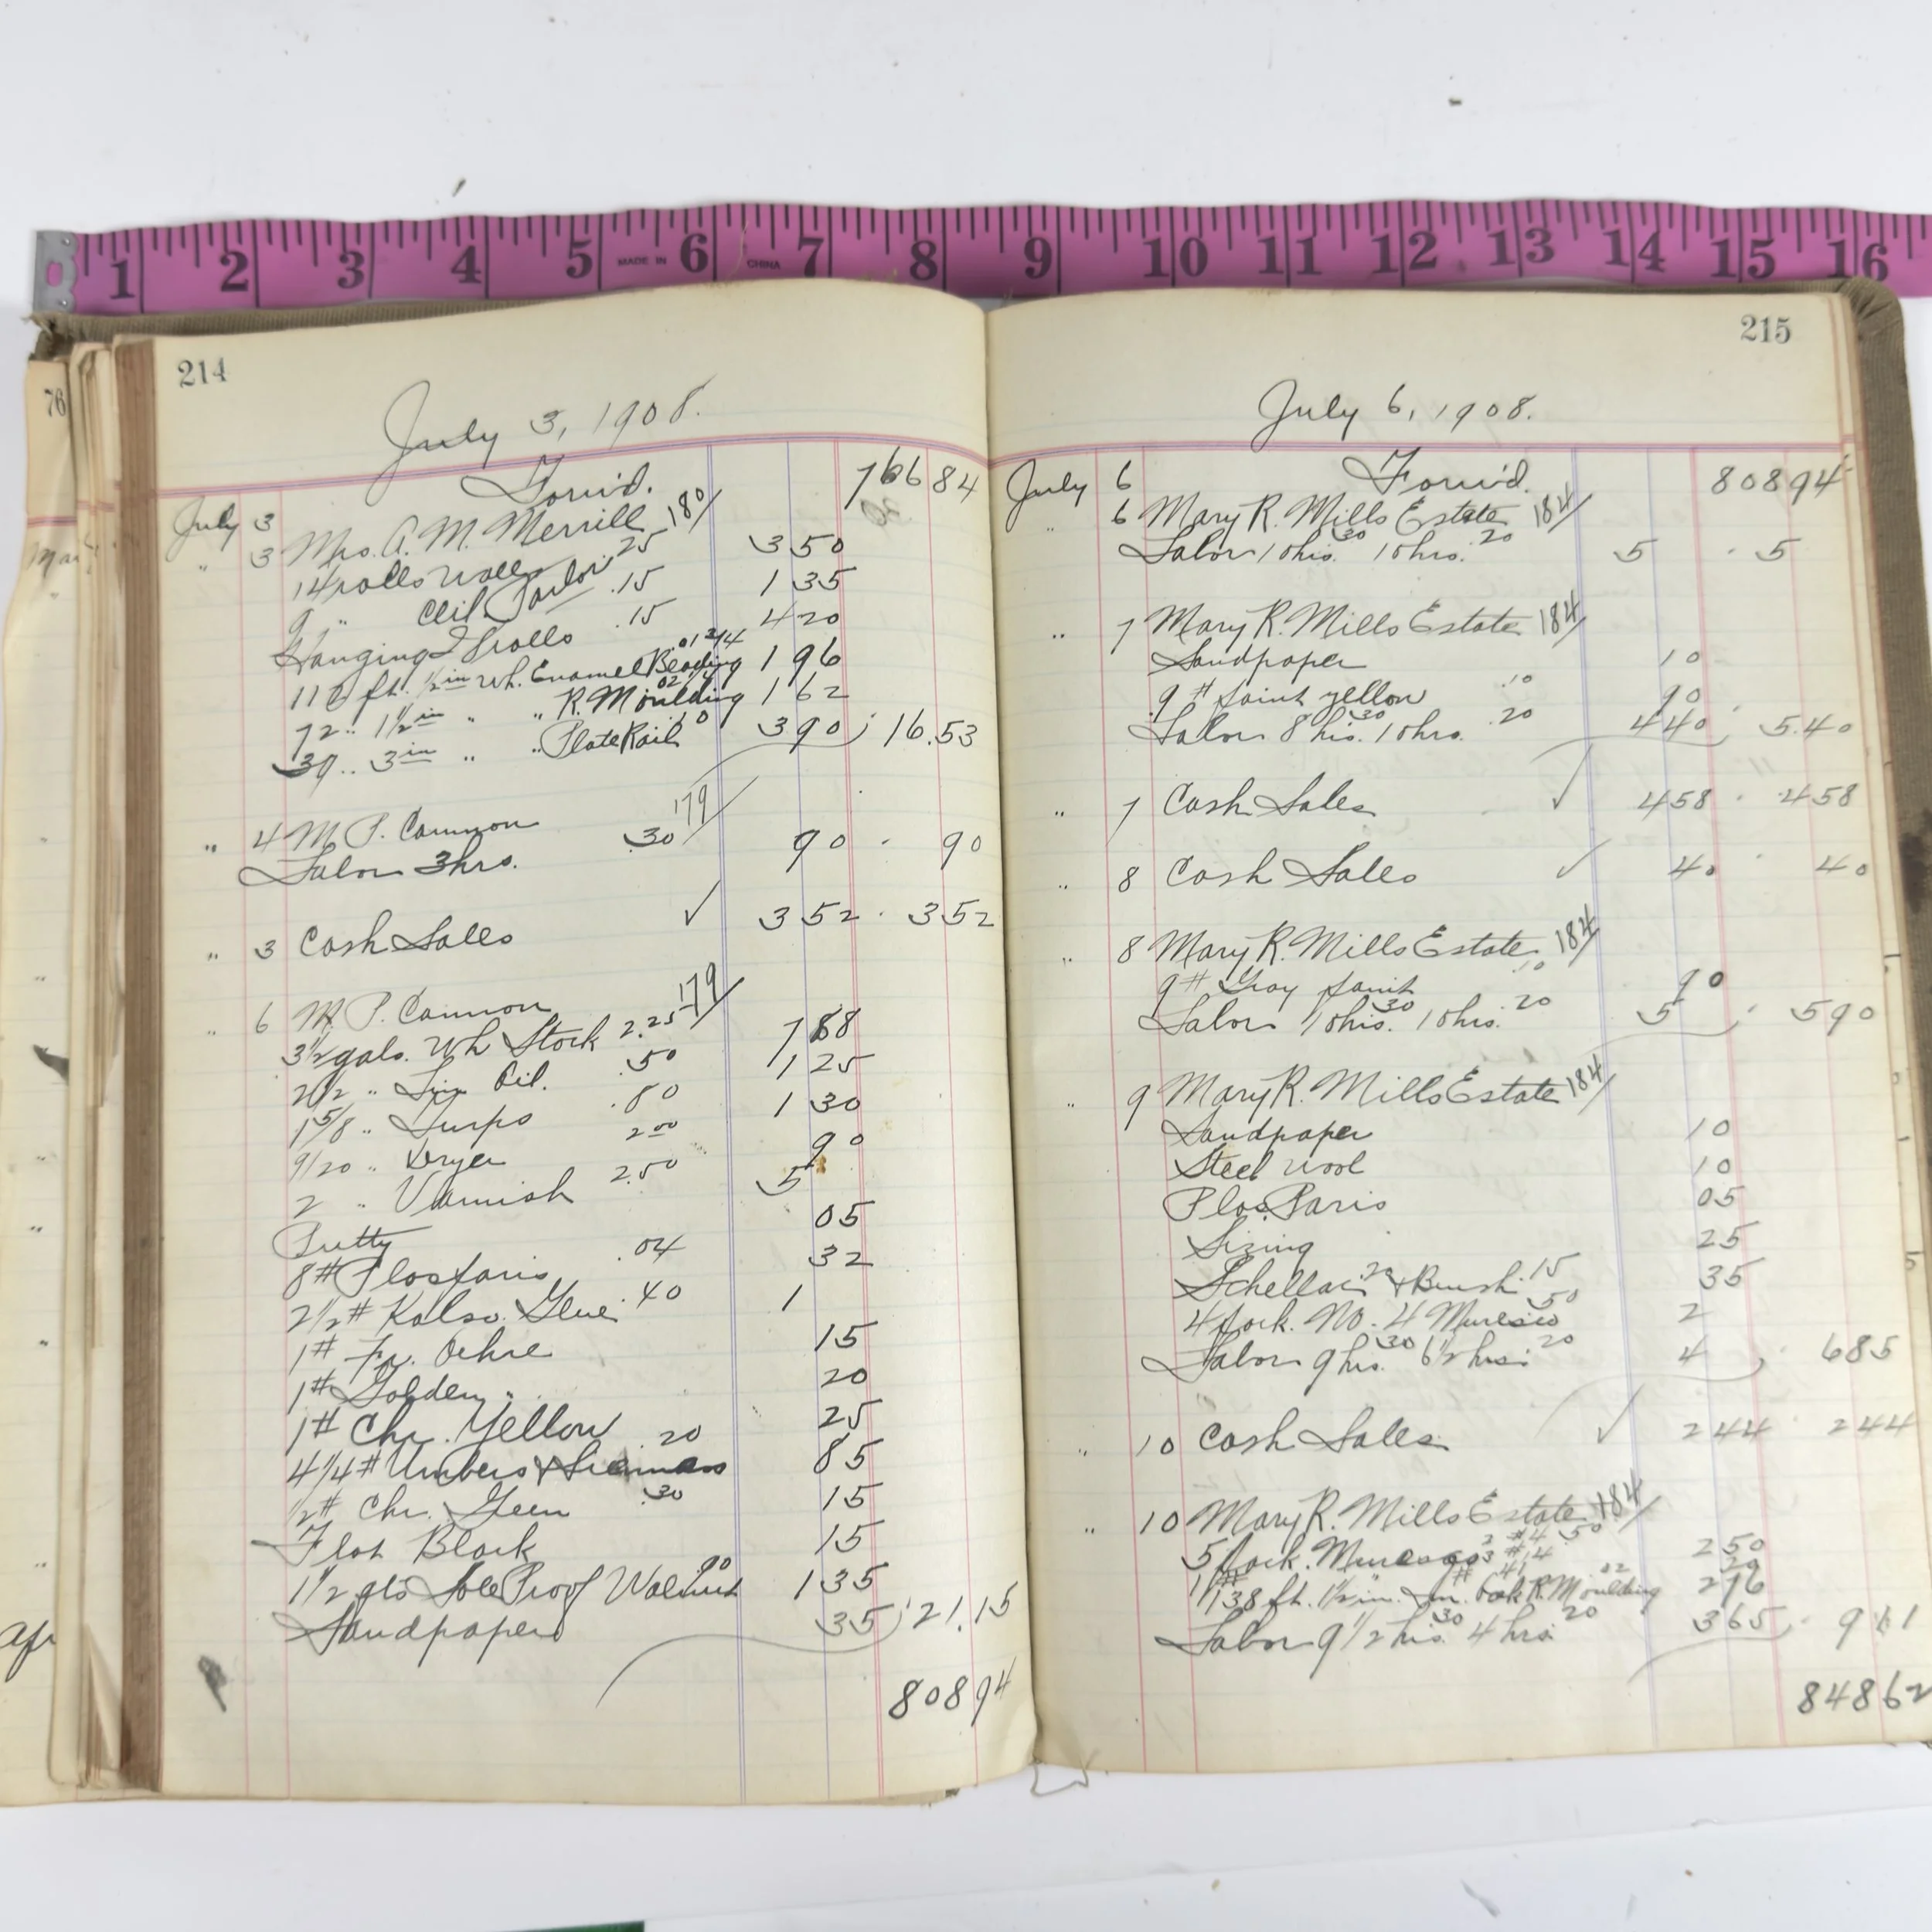 1 2 3 4 5 MADE IN 6 CHINA 7 8 9 10 11 12 13 14 15 16
76
214
July 3, 1908.
July 3 Forw'd. 766 84
" 3 Mrs. A. M. Merrill 180/
14 rolls Wall .25 3 50
9 " Ceil. Parlor .15 1 35
Hanging 28 rolls .15 4 20
112 ft. 1/2 in Wh. Enamel Beading .01 3/4 1 96
72 " 1 1/2 in " " R. Moulding .02 1/4 1 62
39 " 3 in " " Plate Rail 10 3 90 ; 16.53
" 4 M. P. Cannon 179/
Labor 3 hrs. .30 90 . 90
" 3 Cash Sales ✓ 3 52 . 3 52
" 6 M. P. Cannon 179/
3 1/2 gals. Wh Stock 2.25 7 88
2 1/2 " Lin Oil. .50 1 25
1 5/8 " Turps .80 1 30
9/20 " Dryer 2 00 90
2 " Varnish 2.50 5
Putty 05
8# Plas Paris .04 32
2 1/2 # Kalso. Glue .40 1
1# Fr. Ochre 15
1# Golden " 20
1# Chr. Yellow 25
4 1/4 # Umbers & Siennas 20 85
1/2 # Chr. Green .30 15
Flat Black 15
1 1/2 qts Sole Proof Walnut .90 1 35
Sandpaper 35 ; 21.15
808 94
215
July 6, 1908.
July 6 Forw'd. 808 94
" 6 Mary R. Mills Estate 184/
Labor 10 hrs. 30 10 hrs. 20 5 . 5
" 7 Mary R. Mills Estate 184/
Sandpaper 10
9# paint yellow .10 90
Labor 8 hrs. .30 10 hrs. 20 4 40 ; 5.40
" 7 Cash Sales ✓ 4 58 . 4 58
" 8 Cash Sales ✓ 40 . 40
" 8 Mary R. Mills Estate 184/
9# Gray paint .10 90
Labor 10 hrs. 30 10 hrs. 20 5 ; 5 90
" 9 Mary R. Mills Estate 184/
Sandpaper 10
Steel Wool 10
Plas. Paris 05
Sizing 25
Schellac 20 & Brush .15 35
4 pack. No. 4 Muresco 50 2
Labor 9 hrs. 30 6 1/2 hrs. 20 4 ; 6 85
" 10 Cash Sales ✓ 2 44 . 2 44
" 10 Mary R. Mills Estate 184/
5 pack. Muresco 2 #4 3 #14 50 2 50
138 ft. 1 1/2 in. Oak R. Moulding 02 2 76
Labor 9 1/2 hrs. 30 4 hrs. 20 3 65 . 9 61
848 62